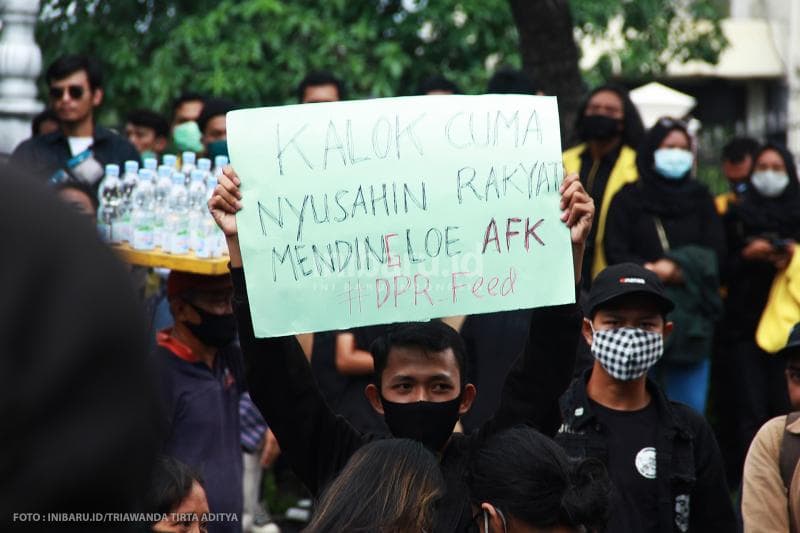 KALOK CUMA
NYUSAHIN RAKYAT
MENDING LOE AFK
#DPR_Feed
inibaru.id
FOTO : INIBARU.ID/TRIAWANDA TIRTA ADITYA